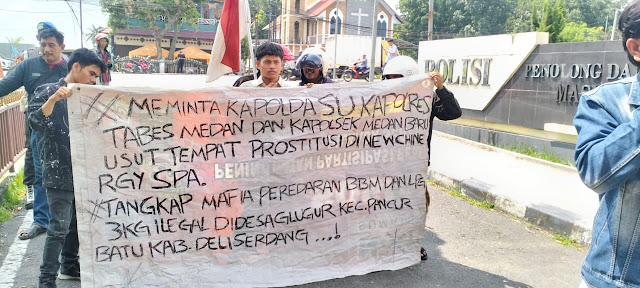 POLISI
PENOLONG DA
MAS
XX MEMINTA KAPOLDA SU KAPOLRES
TABES MEDAN DAN KAPOLSEK MEDAN BARU
USUT TEMPAT PROSTITUSI DI NEW CHINE
RGY SPA.
X TANGKAP MAFIA PEREDARAN BBM DAN LPG
3KG ILEGAL DIDESAGLUGUR KEC.PANCUR
BATU KAB. DELI SERDANG ...!